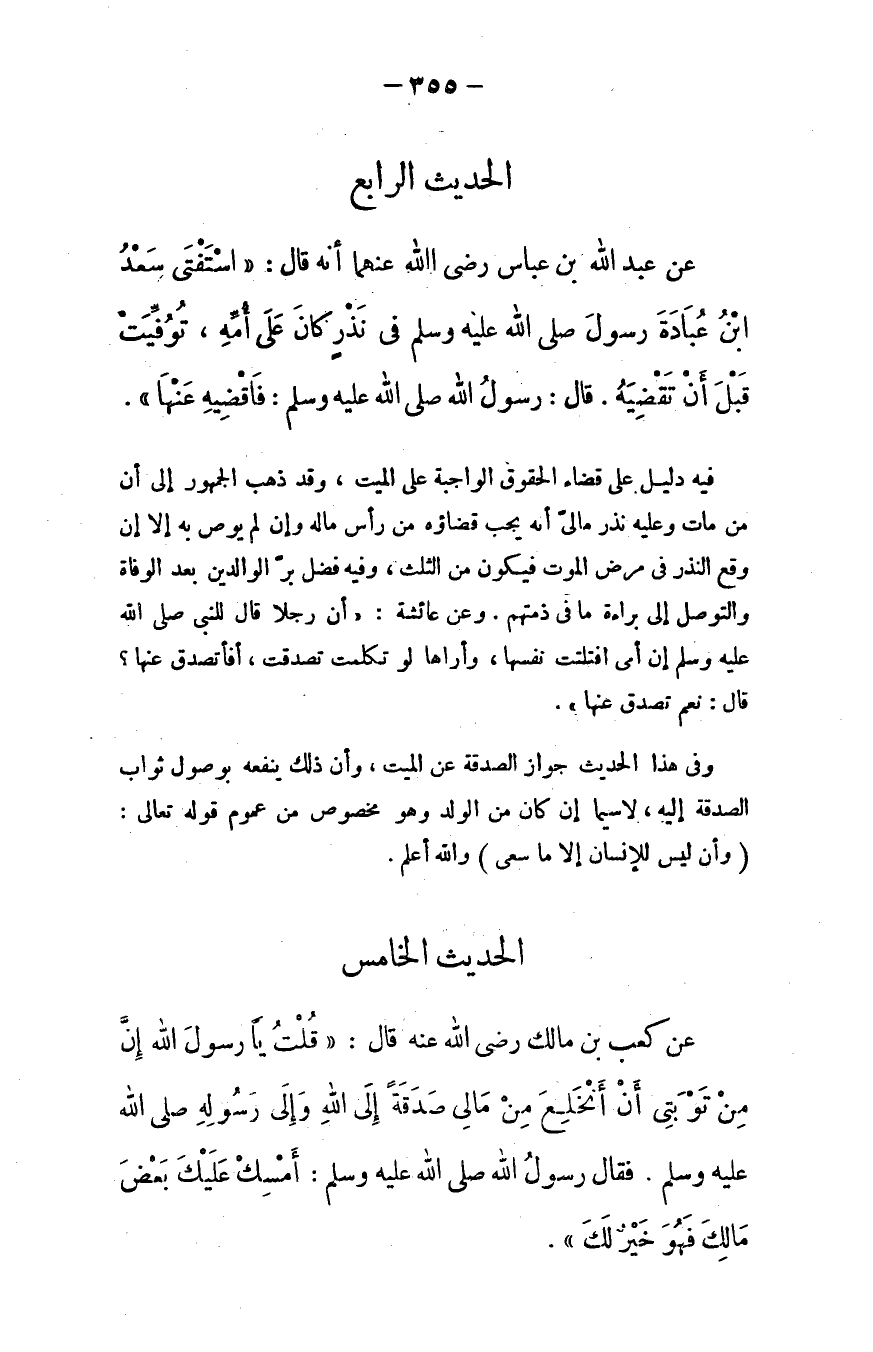 — ٣٥٥ —
الحديث الرابع
عن عبد الله بن عباس رضى االله عنهما أنه قال : « اسْتَفْتَى سَعْدُ
ابْنُ عُبَادَةَ رسولَ صلى الله عليه وسلم فى نَذْرٍ كانَ عَلَى أُمِّهِ ، تُوُفِّيَتْ
قَبْلَ أَنْ تَقْضِيَهُ . قال : رسولُ الله صلى الله عليه وسلم : فَاقْضِيهِ عَنْهَا » .
فيه دليل على قضاء الحقوق الواجبة على الميت ، وقد ذهب الجمهور إلى أن
من مات وعليه نذر مالىّ أنه يجب قضاؤه من رأس ماله وإن لم يوص به إلا إن
وقع النذر فى مرض الموت فيكون من الثلث ، وفيه فضل برّ الوالدين بعد الوفاة
والتوصل إلى براءة ما فى ذمتهم . وعن عائشة : « أن رجلا قال للنبى صلى الله
عليه وسلم إن أمى افتلتت نفسها ، وأراها لو تكلمت تصدقت ، أفأتصدق عنها ؟
قال : نعم تصدق عنها » .
وفى هذا الحديث جواز الصدقة عن الميت ، وأن ذلك ينفعه بوصول ثواب
الصدقة إليه ، لاسيما إن كان من الولد وهو مخصوص من عموم قوله تعالى :
( وأن ليس للإنسان إلا ما سعى ) والله أعلم .
الحديث الخامس
عن كعب بن مالك رضى الله عنه قال : « قُلْتُ يَا رسولَ الله إِنَّ
مِنْ تَوْبَتِى أَنْ أَنْخَلِعَ مِنْ مَالِى صَدَقَةً إِلَى اللهِ وَإِلَى رَسُولِهِ صلى الله
عليه وسلم . فقال رسولُ الله صلى الله عليه وسلم : أَمْسِكْ عَلَيْكَ بَعْضَ
مَالِكَ فَهُوَ خَيْرٌ لَكَ » .